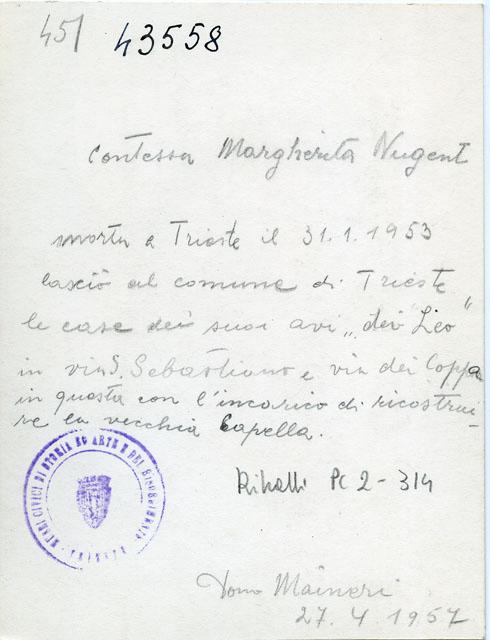 451 43558
Contessa Margherita Nugent
morta a Trieste il 31.1.1953
lasciò al comune di Trieste
le case dei suoi avi „dei Leo"
in via S. Sebastiano e via dei Coppa
in questa con l'incarico di ricostrui-
re la vecchia Capella.
MUSEI CIVICI DI STORIA ED ARTE E DEL RISORGIMENTO
TRIESTE
PC 2 - 314
Dono Maineri
27.4.1957